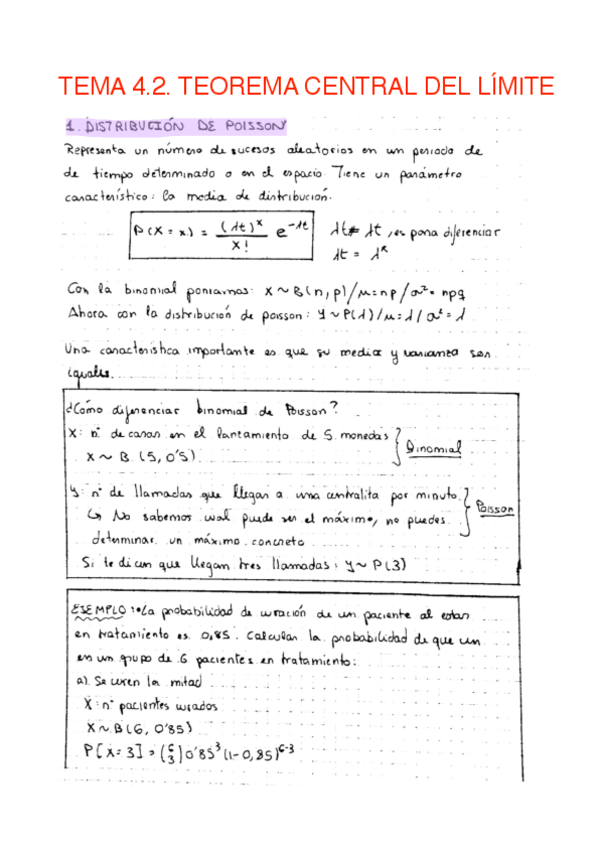 TEMA 4.2. TEOREMA CENTRAL DEL LÍMITE
1. DISTRIBUCIÓN DE POISSON
Representa un número de sucesos aleatorios en un periodo de
de tiempo determinado o en el espacio. Tiene un parámetro
característico: la media de distribución.
P(X = x) = (λt)^x / x! e^-λt
λt ≠ λt, es para diferenciar
λt = λ*
Con la binomial poníamos: X ~ B(n, p) / μ = np / σ² = npq
Ahora con la distribución de poisson: Y ~ P(λ) / μ = λ / σ² = λ
Una característica importante es que su media y varianza son
iguales.
¿Cómo diferenciar binomial de Poisson?
X: nº de caras en el lanzamiento de 5 monedas
X ~ B (5, 0'5)
Binomial
Y: nº de llamadas que llegan a una centralita por minuto.
↳ No sabemos cual puede ser el máximo, no puedes
determinar un máximo concreto
Poisson
Si te dicen que llegan tres llamadas: Y ~ P(3)
EJEMPLO: La probabilidad de curación de un paciente al estar
en tratamiento es 0,85. Calcular la probabilidad de que en
en un grupo de 6 pacientes en tratamiento:
a) Se curen la mitad
X: nº pacientes curados
X ~ B(6, 0'85)
P[X = 3] = (6 3) 0'85³ (1-0,85)^6-3